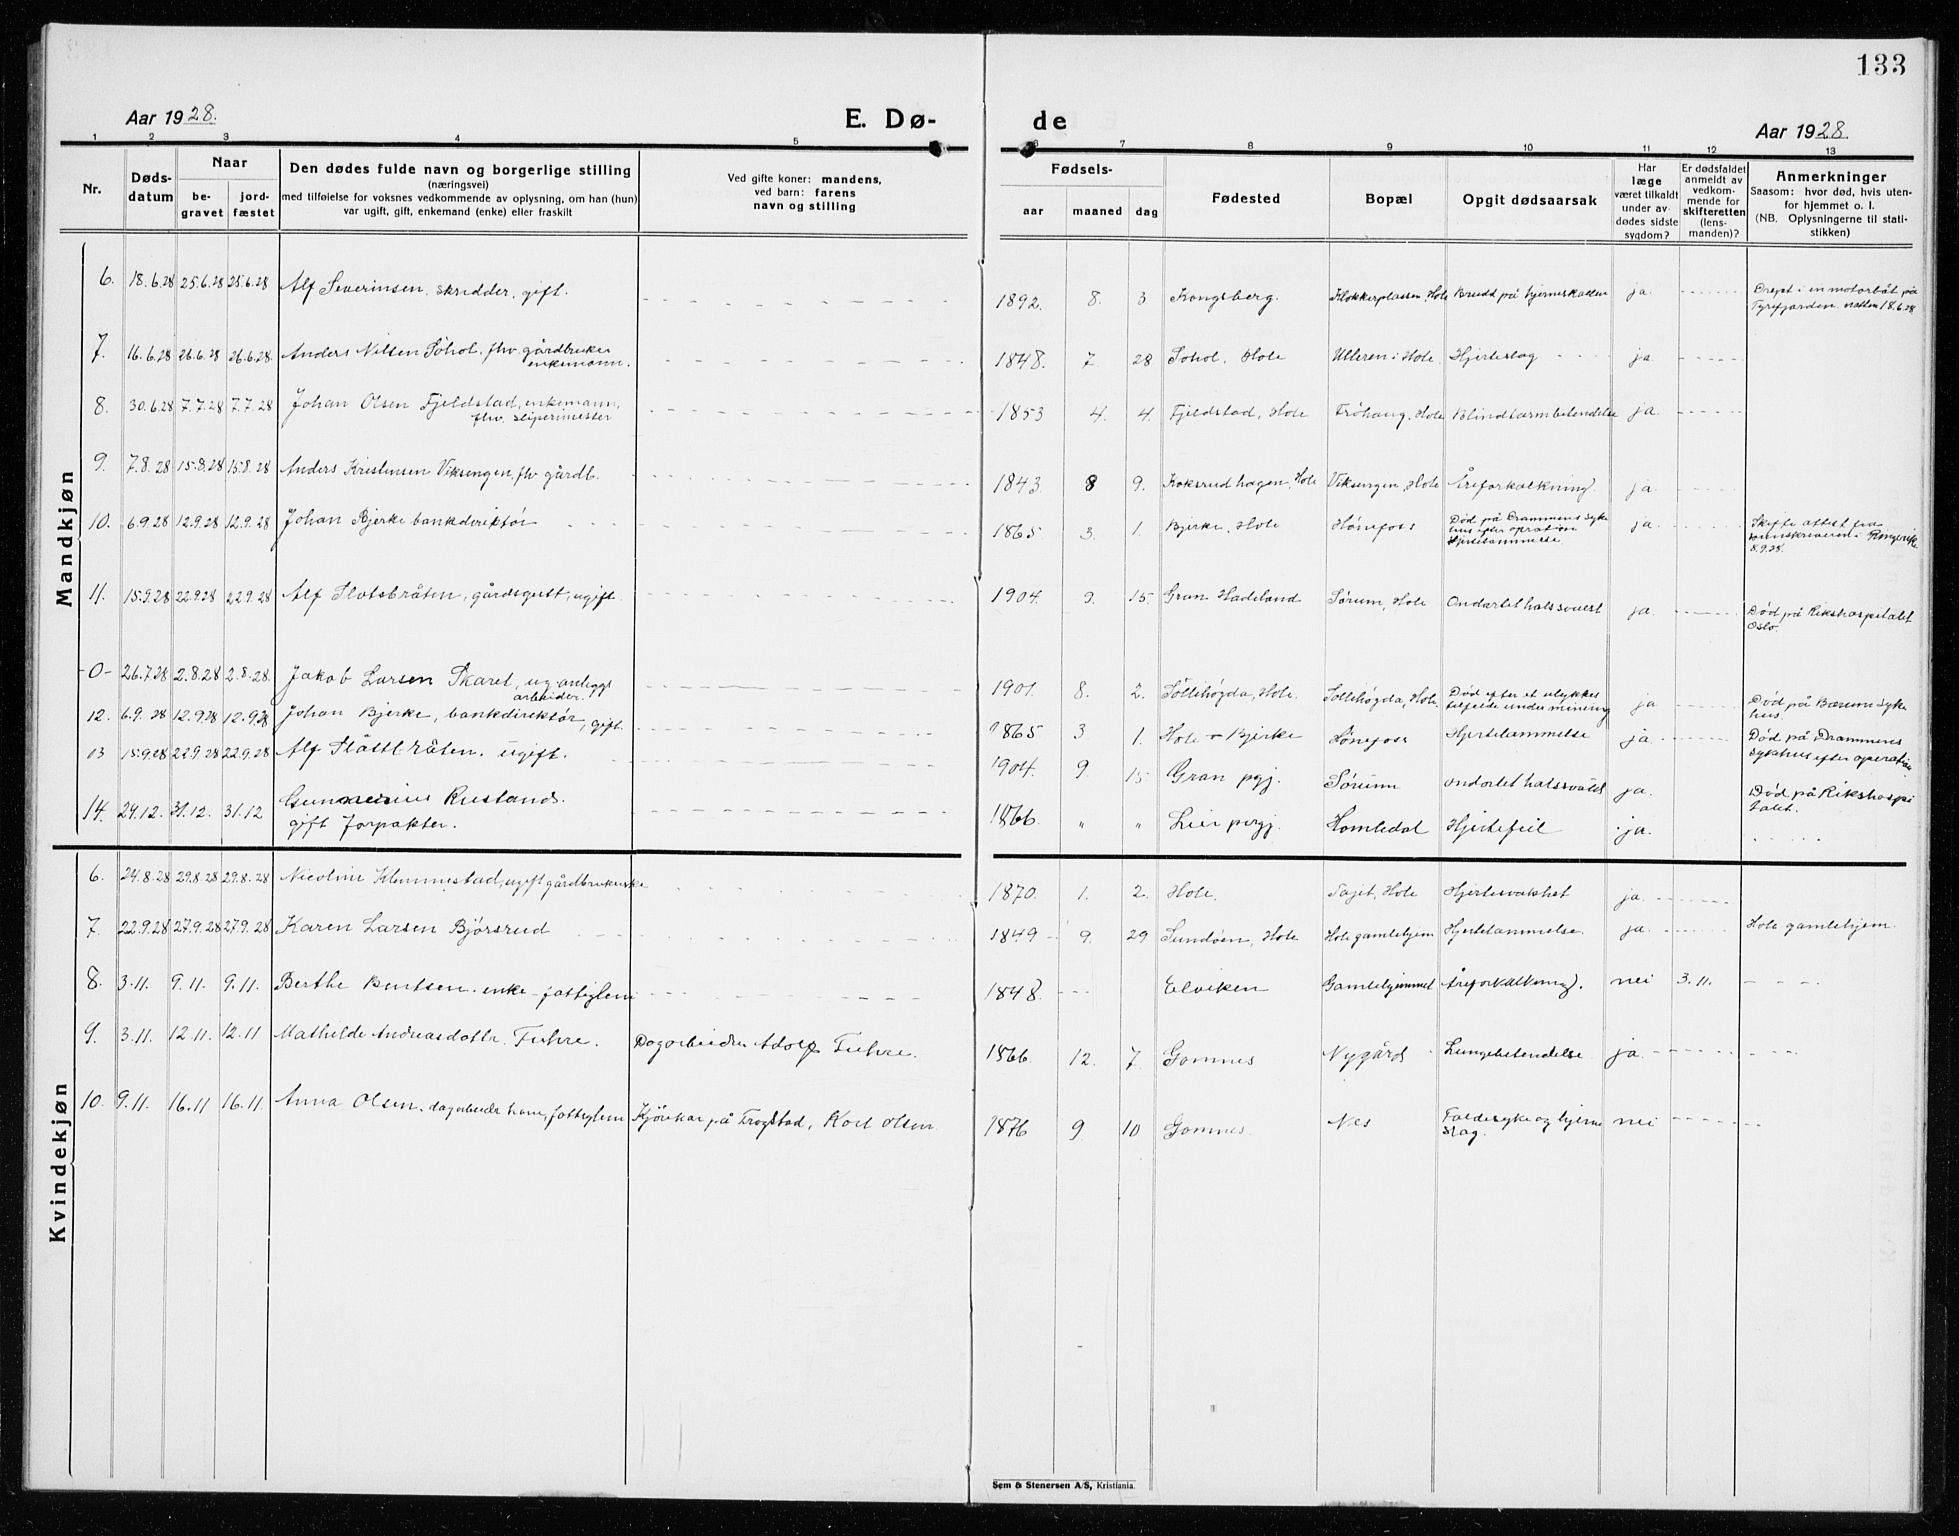 133
Aar 1928. E. Dø- de Aar 1928.
1 2 3 4 5 6 7 8 9 10 11 12 13
Nr. Døds-datum Naar be-gravet jord-fæstet Den dødes fulde navn og borgerlige stilling (næringsvei) med tilføielse for voksnes vedkommende av oplysning, om han (hun) var ugift, gift, enkemand (enke) eller fraskilt Ved gifte koner: mandens, ved barn: farens navn og stilling Fødsels- aar maaned dag Fødested Bopæl Opgit dødsaarsak Har læge været tilkaldt under av dødes sidste sygdom? Er dødsfaldet anmeldt av vedkom-mende for skifteretten (lens-manden)? Anmerkninger Saasom: hvor død, hvis uten-for hjemmet o. l. (NB. Oplysningerne til stati-stikken)
Mandkjøn
6. 18.6.28 25.6.28 25.6.28 Alf Severinsen. skredder. gift. 1892. 8. 3 Kongsberg. Klokkerplassen, Hole Brudd på hjerneskallen ja. Drept i en motorbåt på Tyrefjorden natten 18.6.28
7. 16.6.28 26.6.28 26.6.28. Anders Nilsen Søhol, fhv. gårdbruker enkemann. 1848. 7. 28 Søhol, Hole Ulleren i Hole. Hjerteslag ja
8. 30.6.28 7.7.28 7.7.28 Johan Olsen Fjeldstad, enkemann, fhv. sliperimester 1853 4. 4. Fjeldstad, Hole Frøhaug, Hole Blindtarmbetendelse ja.
9. 7.8.28 15.8.28 15.8.28 Anders Kristensen Viksengen, fhv gårdb. 1843. 8 9. Koksrudhagen, Hole Viksengen, Hole Åreforkalkning. ja
10. 6.9.28 12.9.28 12.9.28 Johan Bjerke bankdirektør 1865 3. 1. Bjerke, Hole Hønefoss Død på Drammens syke hus efter opration Hjertelammelse. ja Skifte attest fra sorenskriveren i Ringerike 8.9.28.
11. 15.9.28 22.9.28 22.9.28 Alf Slotsbråten, gårdsgutt, ugift. 1904. 9. 15. Gran Hadeland Sørum, Hole Ondartet halssvulst ja Død på Rikshospitalet Oslo.
-0- 26.7.28 2.8.28 2.8.28. Jakob Larsen Skaret, ug. anleggs arbeider. 1901. 8. 2. Sollihøgda, Hole. Sollihøgda, Hole. Død efter et ulykkes tilfelde under minering ja Død på Bærum syke hus.
12. 6.9.28 12.9.28 12.9.28 Johan Bjerke, bankdirektør, gift. 1865 3 1. Hole - Bjerke Hønefoss Hjertelammelse ja. Død på Drammens sykehus efter operation
13 15.9.28 22.9.28 22.9.28 Alf Slåttbråten. ugift. 1904. 9. 15 Gran pgj. Sørum ondartet halssvulst ja. Død på Rikshospi talet.
14. 24.12. 31.12. 31.12 Gunnerius Rustand. gift forpakter. 1866. " " Lier prgj. Homledal Hjertefeil ja.
Kvindekjøn
6. 24.8.28 29.8.28 29.8.28 Nicoline Klemmestad, ugift gårdbrukerske 1870. 1. 2. Hole. Hole Hjertesvakhet ja.
7. 22.9.28 27.9.28 27.9.28 Karen Larsen Bjørsrud 1849 9. 29 Sundøen, Hole Hole gamlehjem Hjertelammelse. ja. Hole gamlehjem.
8. 3.11. 9.11. 9.11. Berthe Bentsen. enke - fattiglem 1848. Elviken Gamlehjemmet Åreforkalkning. nei 3.11.
9. 3.11. 12.11. 12.11 Mathilde Andreasdottr. Fuhre. Dagarbeider Adolf Fuhre. 1866. 12. 7. Gomnes Nygård Lungebetendelse ja.
10. 9.11. 16.11 16.11. Anna Olsen. dagarbeider kone, fattiglem Kjørekar på Trøgstad, Karl Olsen 1876 9. 10 Gomnes. Nes Faldesyke og hjerne slag. nei
Sem & Stenersen A/S, Kristiania.